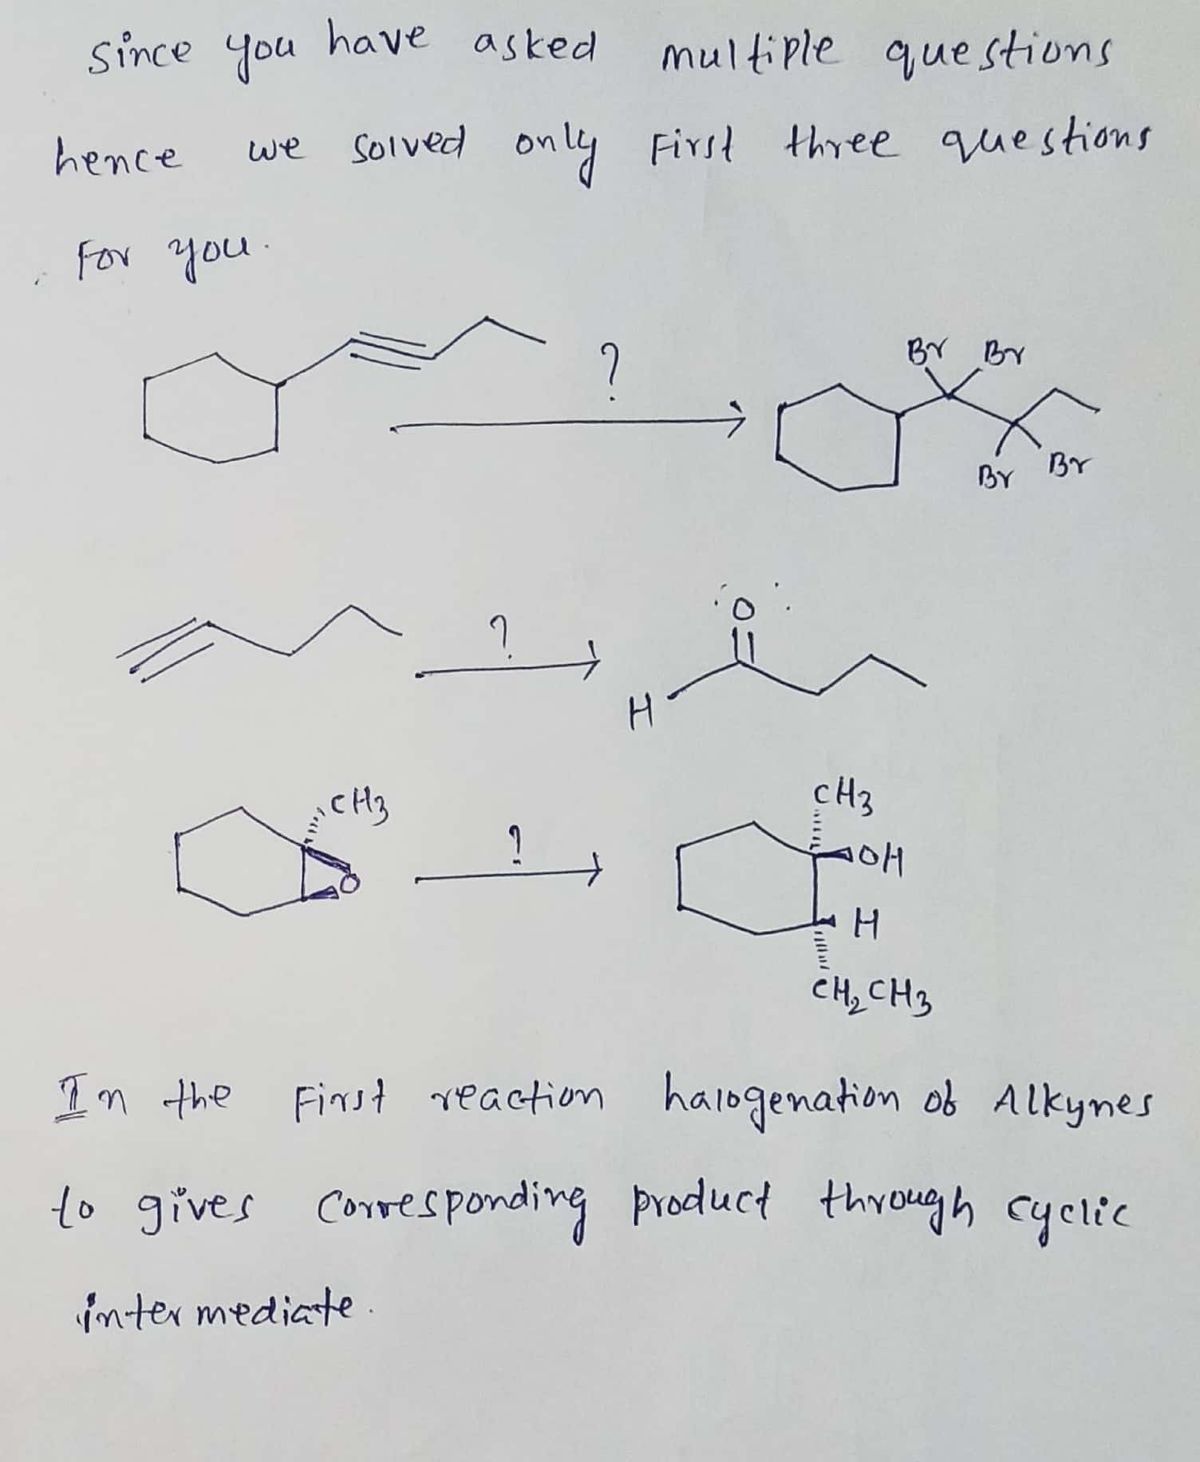 Since you have asked multiple questions
hence we solved only First three questions
For you.
?
Br Br
Br Br
?
O
H
CH3
O
?
CH3
OH
H
CH2CH3
In the First reaction halogenation of Alkynes
to gives corresponding product through cyclic
intermediate.